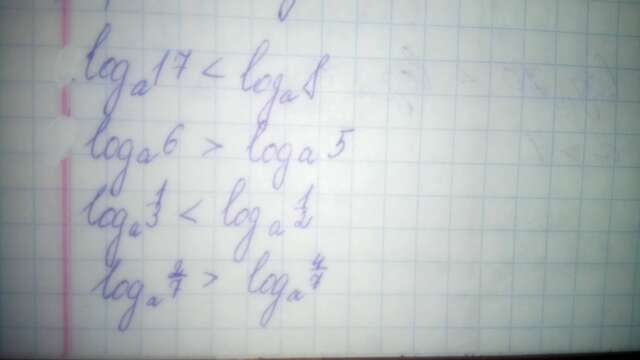 logₐ17 < logₐ8
logₐ6 > logₐ5
logₐ 1/3 < logₐ 1/2
logₐ 2/7 > logₐ 4/7